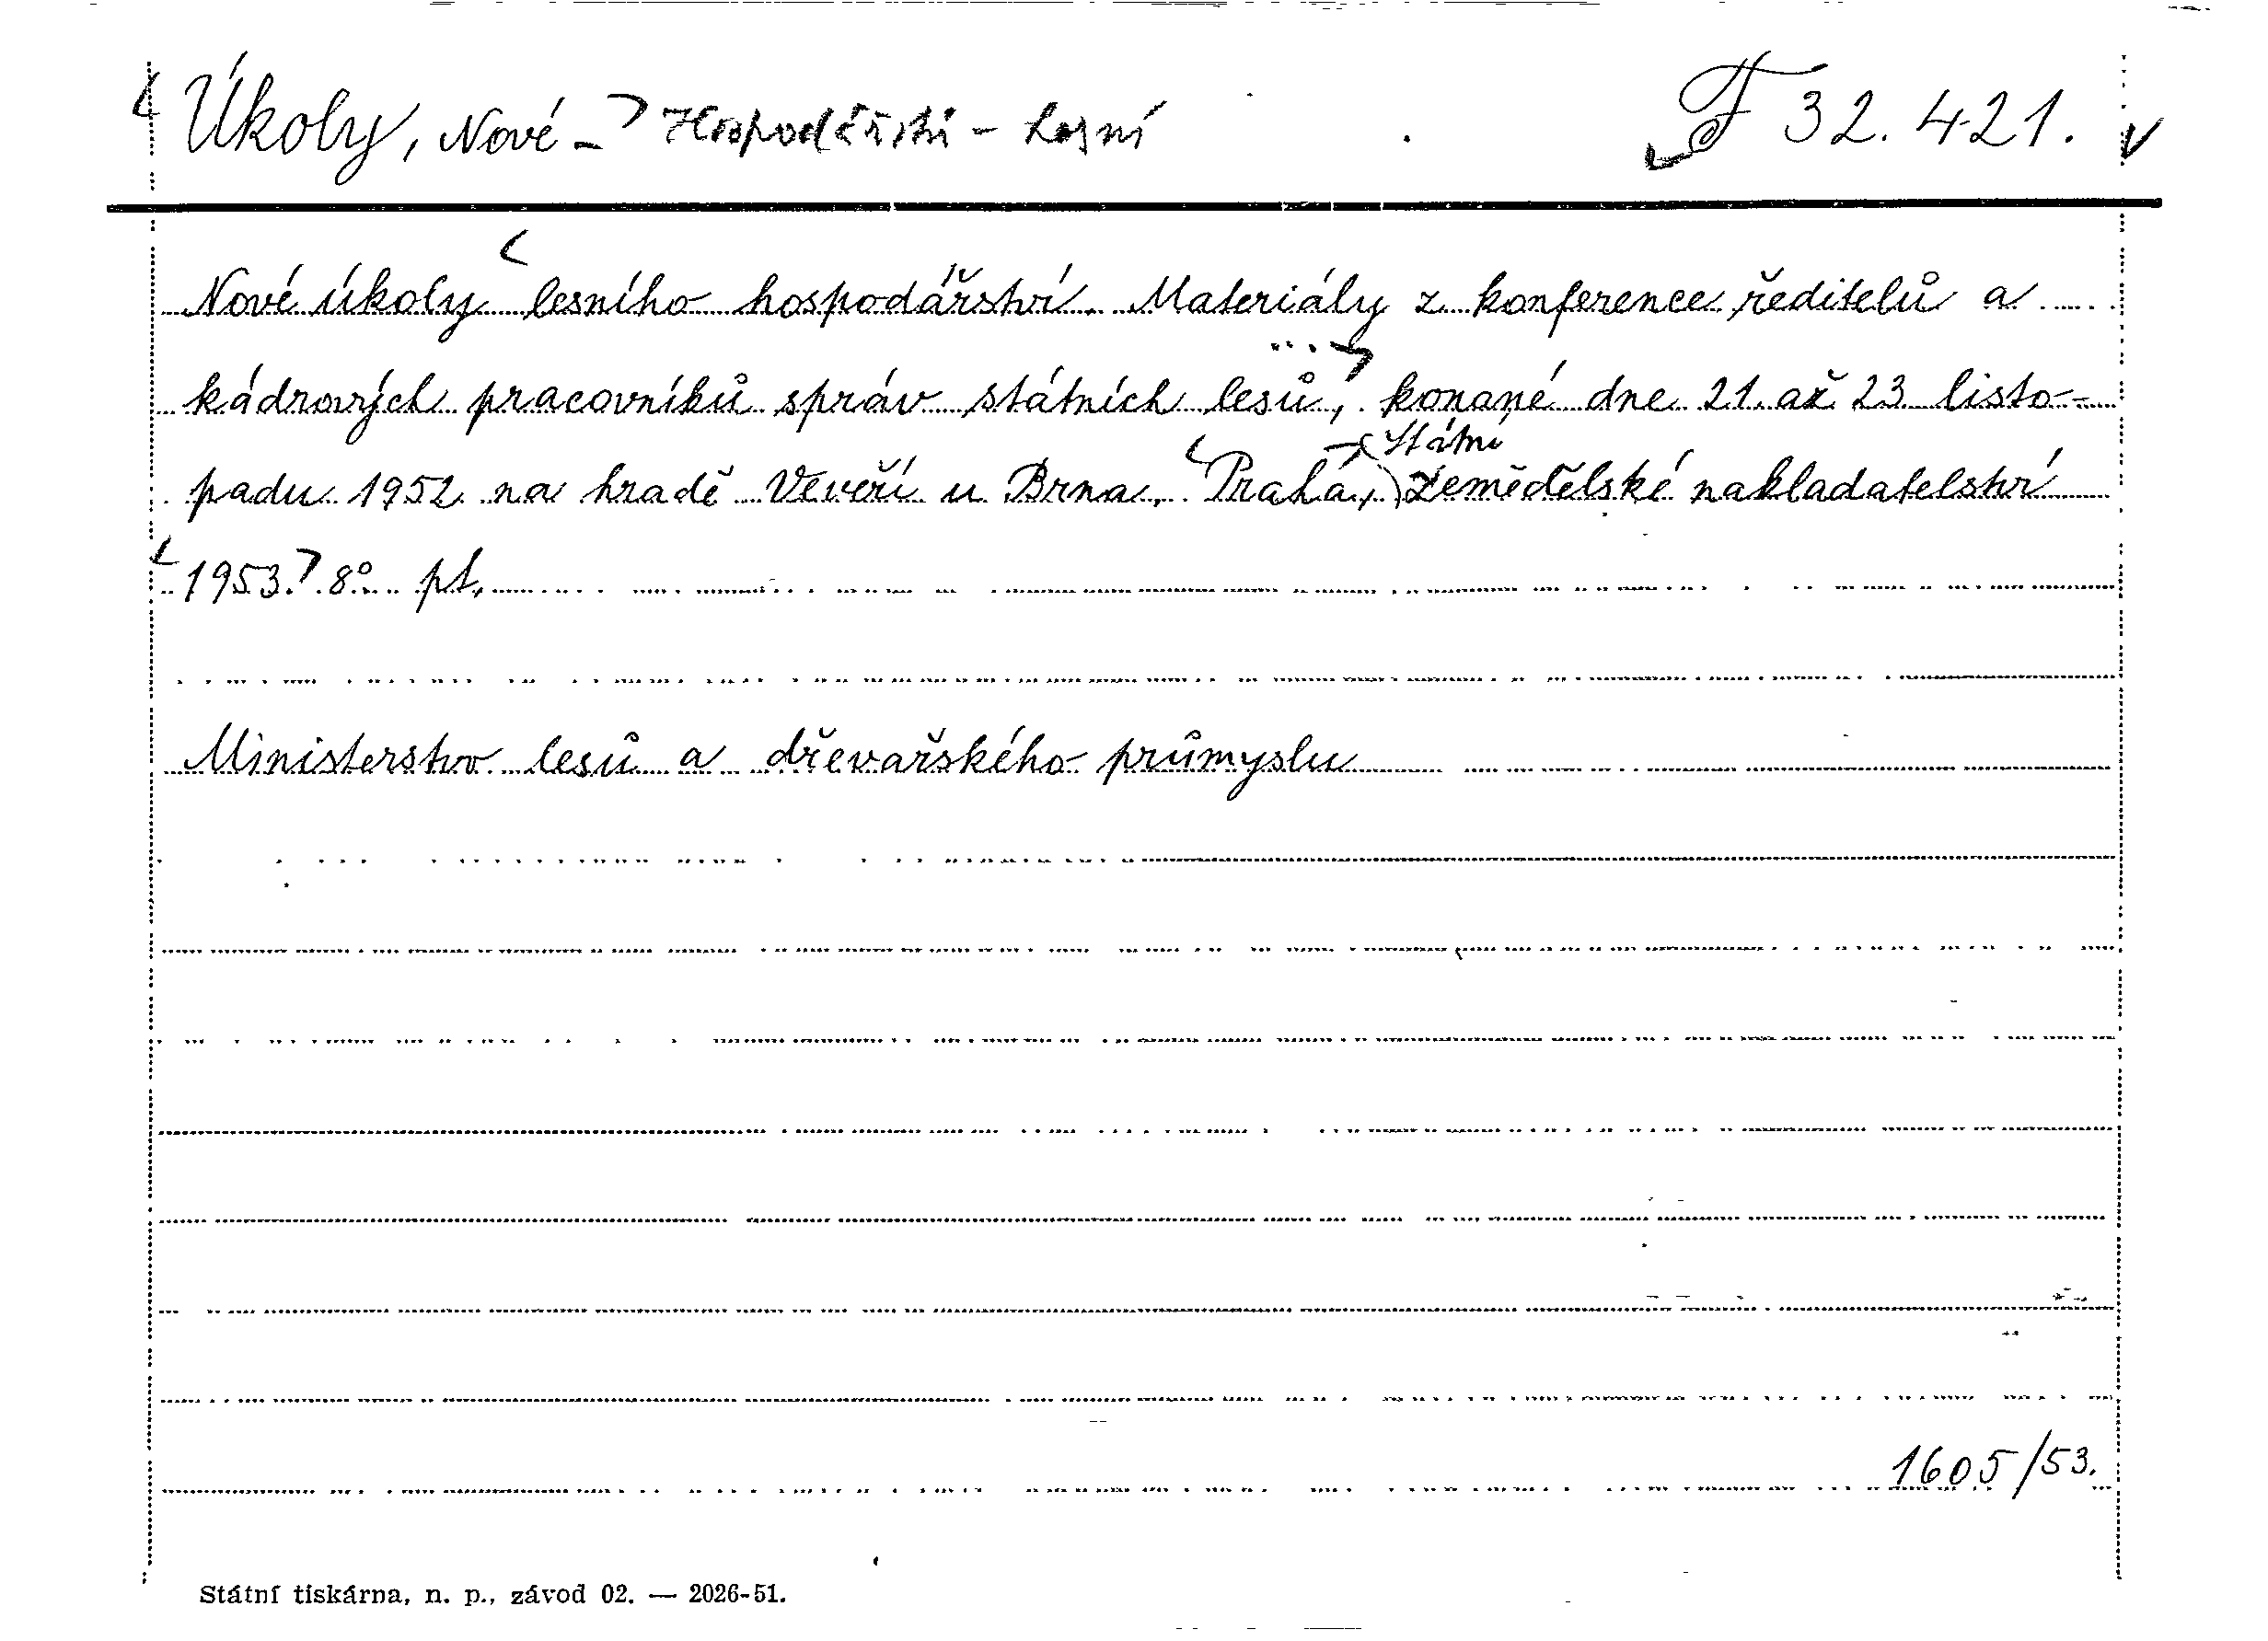 Úkoly, Nové - Hospodářství - Lesní F 32.421.
Nové úkoly lesního hospodářství. Materiály z konference ředitelů a
kádrových pracovníků správ státních lesů, konané dne 21. až 23 listo-
Státní
padu 1952 na hradě Veveří u Brna, Praha, Zemědělské nakladatelství
1953. 8° pt.
Ministerstvo lesů a dřevařského průmyslu
1605/53.
Státní tiskárna, n. p., závod 02. — 2026-51.